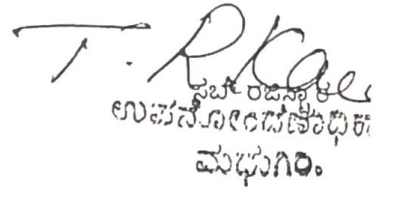 T. R Ka
ಸಬ್ ರಜಿಸ್ಟ್ರಾರ
ಉಪನೋಂದಣಾಧಿಕ
ಮಧುಗಿರಿ.